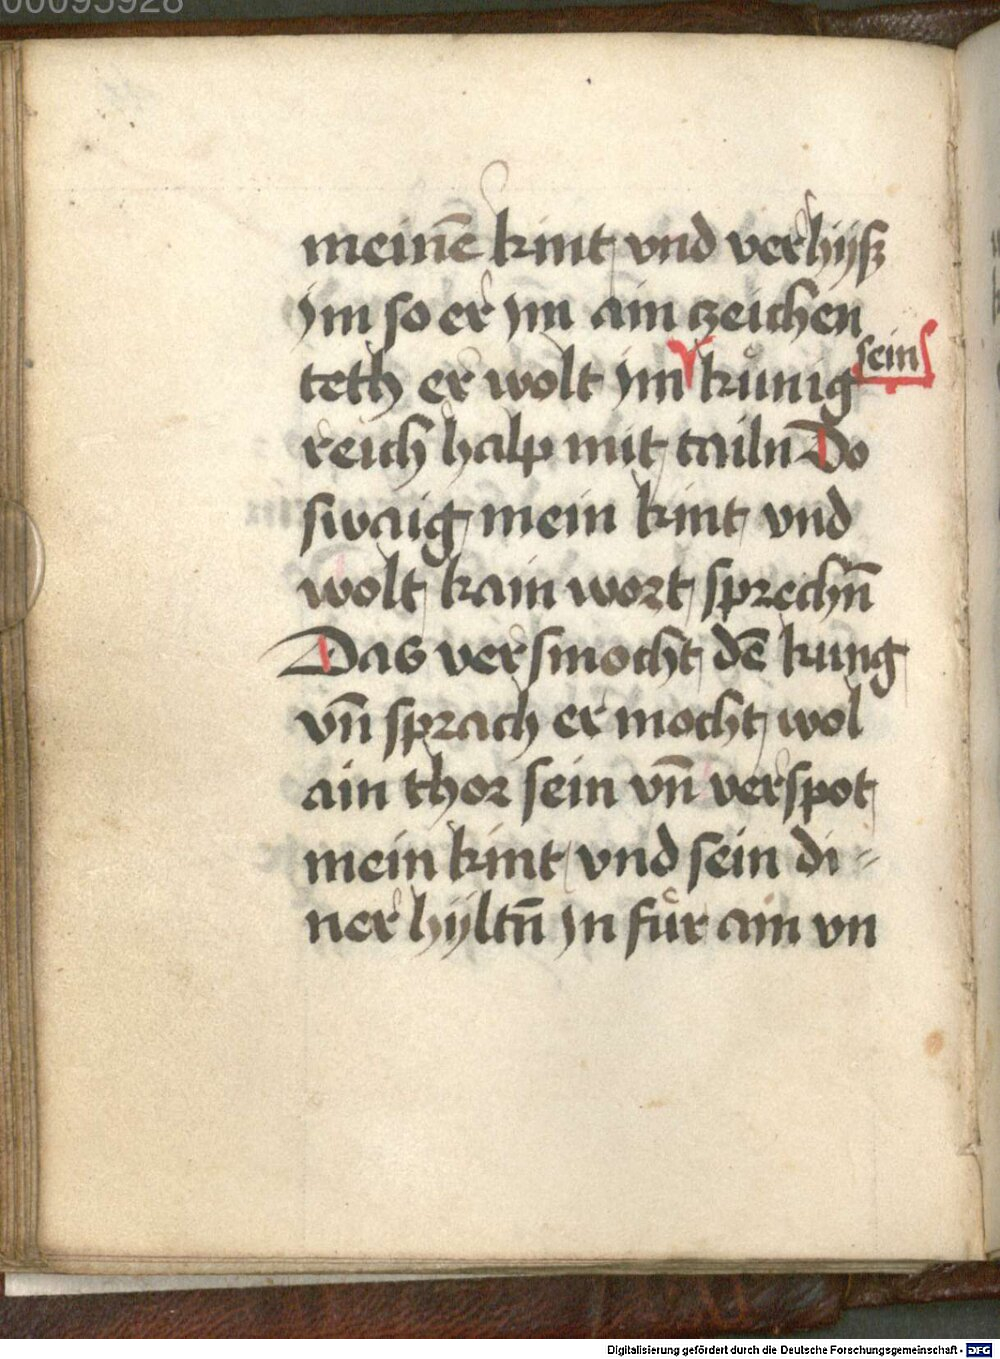 00095928
meinē kint vnd verhijß
jm so er jm ain zeichen
teth er wolt jm kůnig sein
reich halp mit tailn Do
swaig mein kint vnd
wolt kain wort sprechn̄
Das versmocht dē kung
vn̄ sprach er mocht wol
ain thor sein vn̄ verspot
mein kint vnd sein di⸗
ner hijltn̄ jn fůr ain vn
Digitalisierung gefördert durch die Deutsche Forschungsgemeinschaft - DFG